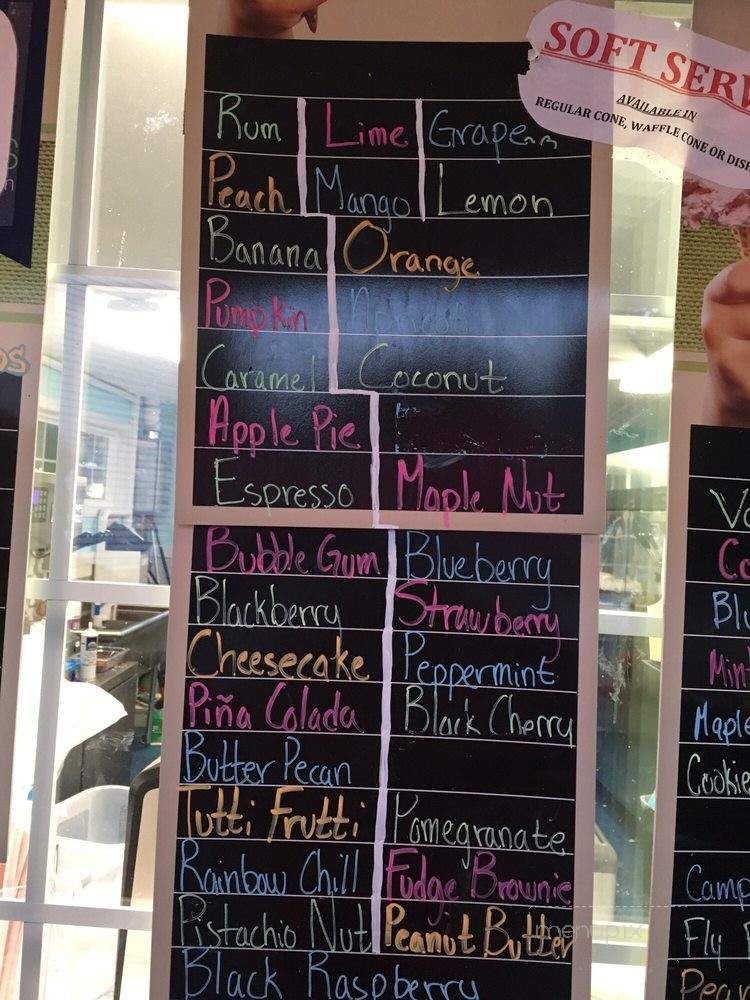 SOFT SERV
AVAILABLE IN
REGULAR CONE, WAFFLE CONE OR DISH
Rum Lime Grape
Peach Mango Lemon
Banana Orange
Pumpkin
Caramel Coconut
Apple Pie
Espresso Maple Nut
Bubble Gum Blueberry
Blackberry Strawberry
Cheesecake Peppermint
Piña Colada Black Cherry
Butter Pecan
Tutti Frutti Pomegranate
Rainbow Chill Fudge Brownie
Pistachio Nut Peanut Butter
Black Raspberry
Va
Co
Blu
Min
Maple
Cookie
Camp
Fly
Pecan
menupix